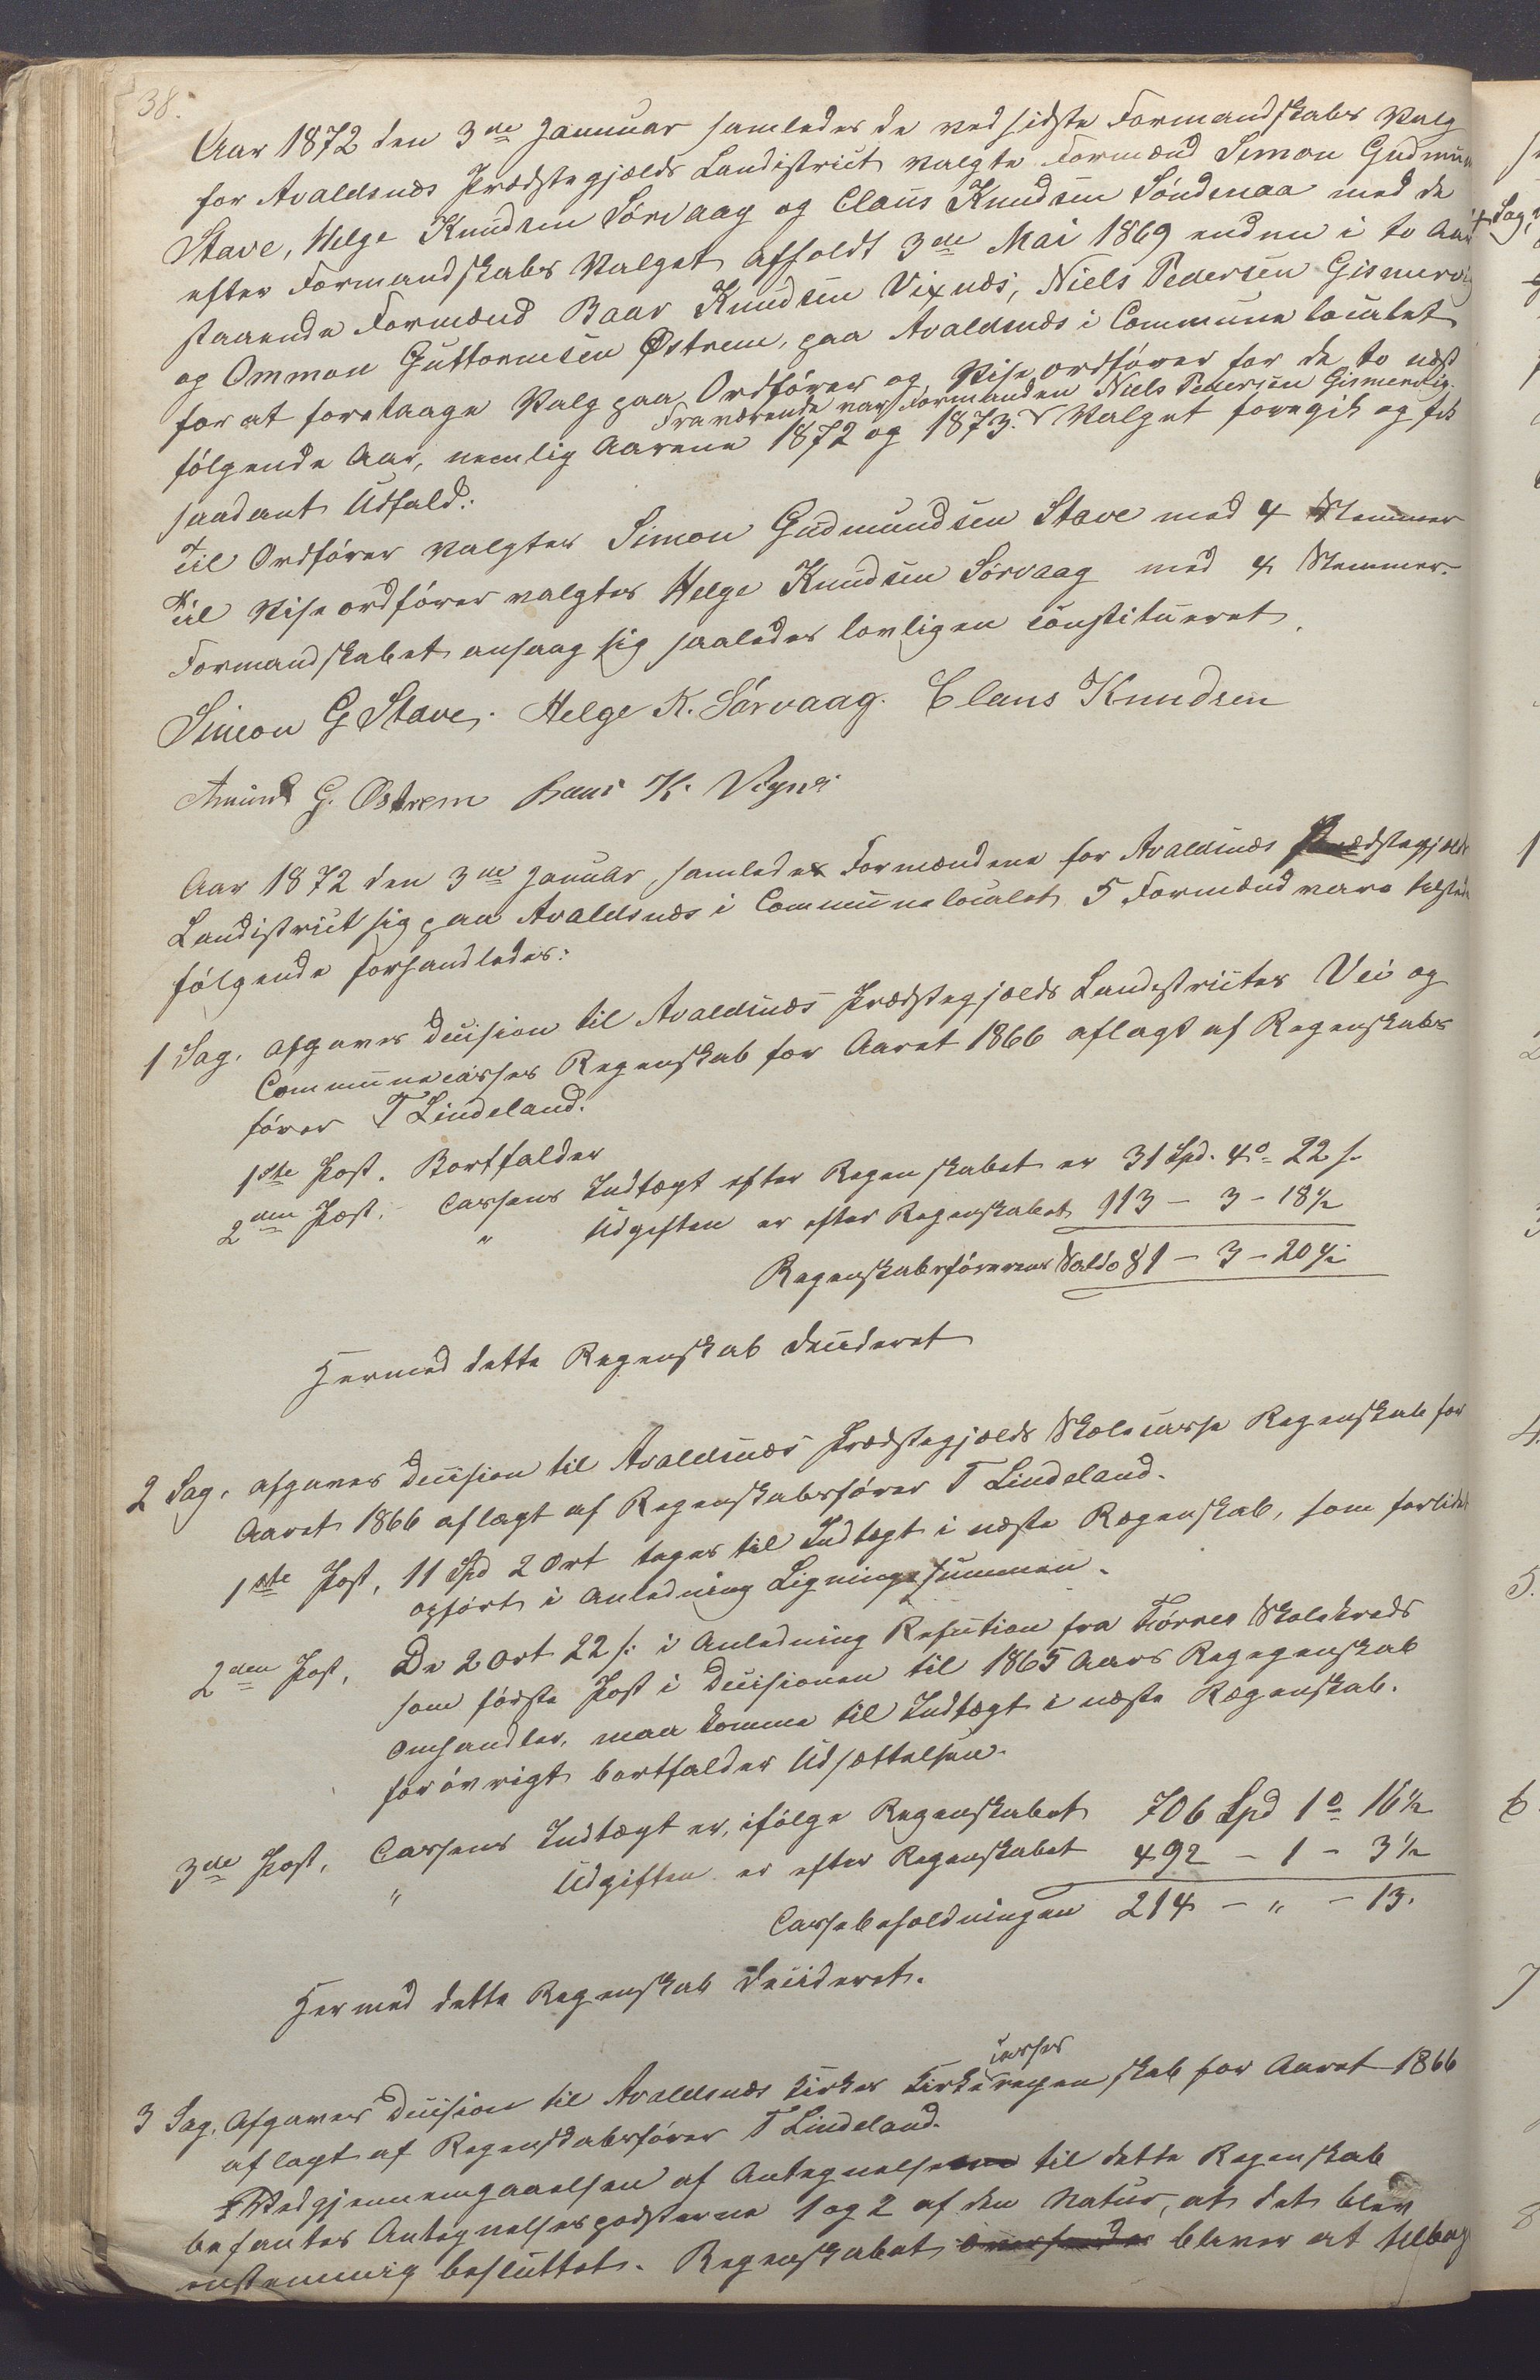 38.
Aar 1872 den 3die Januuar samledes de ved sidste Formandskabs Valg
for Avaldsnæs Prædstegjælds Landistrict valgte Formænd Simon Gudmun
Stave, Helge Knudsen Sørvaag og Claus Knudsen Søndenaa med de
efter Formandskabs Valget afholdt 3die Mai 1869 endnu i to Aar
staaende Formænd Baar Knudsen Vixnæs, Niels Pedersen Gismervig
og Ommon Guttormsen Østrem, paa Avaldsnæs i Commune localet
for at foretaage Valg paa Ordfører og Viseordfører for de to næst
Fraværende var Formanden Niels Pedersen Gismervig.
følgende Aar, nemlig Aarene 1872 og 1873. Valget foregik og fik
saadant Udfald:
Til Ordfører valgtes Simon Gudmundsen Stave med 4 Stemmer
Til Viseordfører valgtes Helge Knudsen Sørvaag med 4 Stemmer.
Formandskabet ansaag sig saaledes lovligen constitueret.
Simon G Stave. Helge K. Sørvaag. Claus Knudsen
Amund G. Østrem Baar K. Vignæs
Aar 1872 den 3die Januar samledes Formændene for Avaldsnæs Prædstegjælds
Landistrict sig paa Avaldsnæs i Communelocalet 5 Formænd vare tilstede
følgende forhandledes:
1 Sag. afgaves Decision til Avaldsnæs Prædstegjælds Landistrictes Vei og
Communecasses Regenskab for Aaret 1866 aflagt af Regenskabs
fører T Lindeland.
1ste Post. Bortfalder
2den Post. Cassens Indtægt efter Regenskabet er 31 Spd. 4o 22 s.
" Udgiften er efter Regenskabet 113 – 3 – 18½
Regenskabsførerens Saldo 81 – 3 – 20½
Hermed dette Regenskab decideret
2 Sag. afgaves Decision til Avaldsnæs Prædstegjælds Skolecasse Regenskab for
Aaret 1866 aflagt af Regenskabsfører T Lindeland.
1ste Post, 11 Spd 2 Ort tages til Indtægt i næste Regenskab, som forlidet
opført i Anledning Ligningssummen.
2den Post, De 2 Ort 22 s. i Anledning Refution fra Førres Skolekreds
som første Post i Decisionen til 1865 Aars Regegenskab
omhandler, maa komme til Indtægt i næste Regenskab.
forøvrigt bortfalder Udsættelsen.
3die Post, Cassens Indtægt er, ifølge Regenskabet 706 Spd 1o 16½
" Udgiften er efter Regenskabet 492 – 1 – 3½
Cassebeholdningen 214 – " – 13.
Hermed dette Regenskab decideret.
casses
3 Sag. Afgaves Decision til Avaldsnæs Kirkes Kirkeregenskab for Aaret 1866
aflagt af Regenskabsfører T Lindeland.
Ved gjennemgaaelsen af Antegnelserne til dette Regenskab
befantes Antegnelsespodsterne 1 og 2 af den Natur, at det blev
enstemmig besluttet. Regenskabet oversendes bliver at tilbag